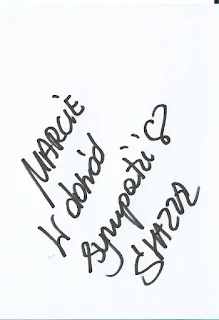 MARCIE
W dowód
sympatii ♡
SHAZZA